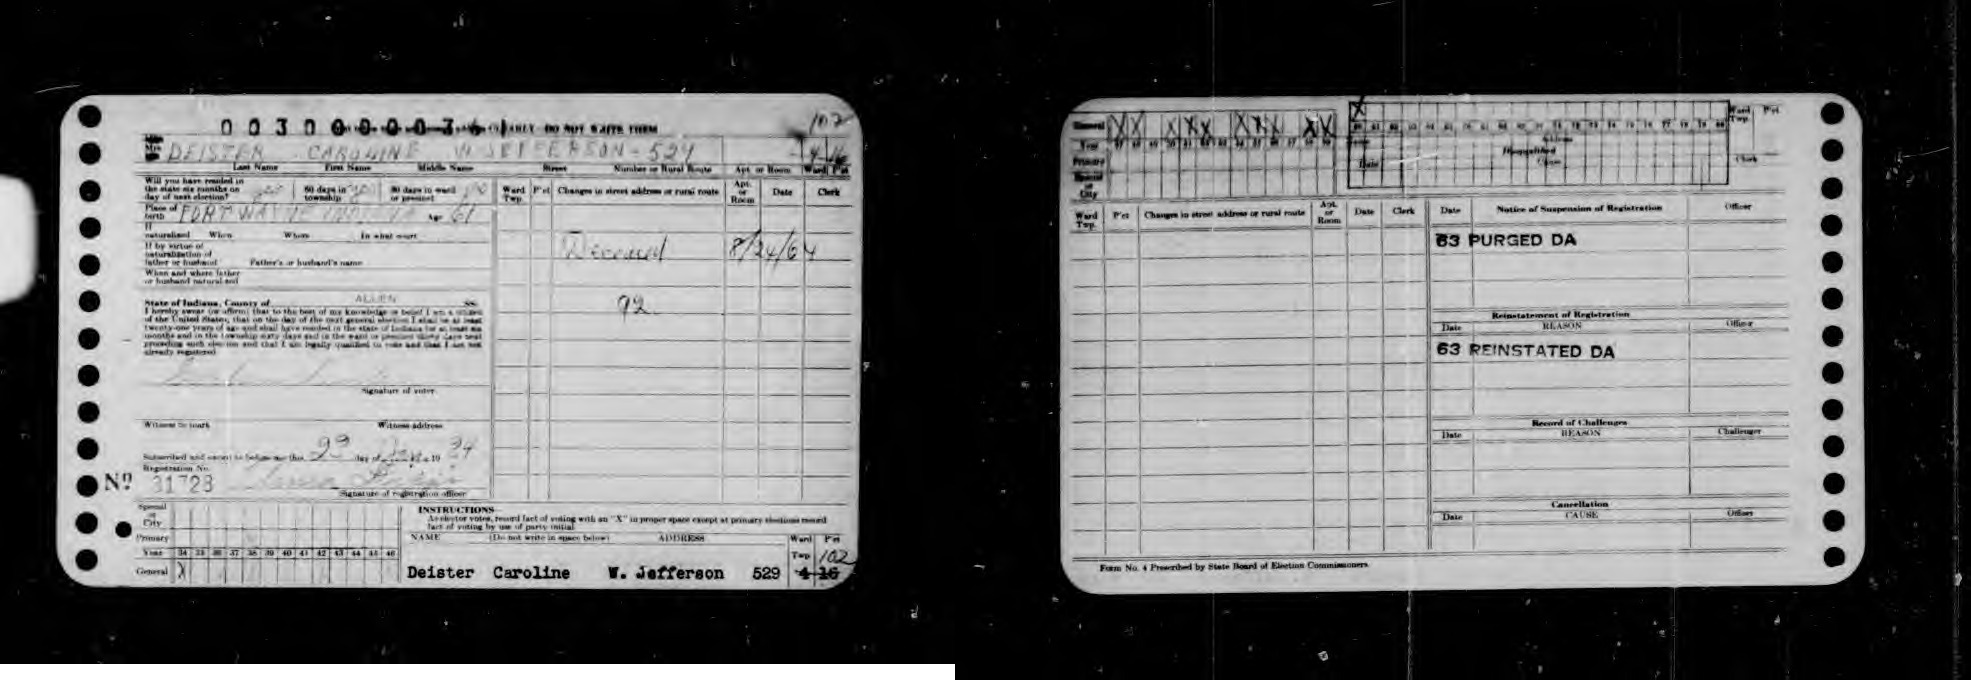 003000003
CLEARLY DO NOT WRITE THEM
102
Miss
Mrs
DEISTER CAROLINE W JEFFERSON - 529
4-16
Last Name First Name Middle Name Street Number or Rural Route Apt. or Room Ward P'ct
Will you have resided in
the state six months on
day of next election?
60 days in
township
30 days in ward
or precinct
Place of
birth FORT WAYNE INDIANA Age 61
If
naturalized When Where In what court
If by virtue of
naturalization of
father or husband Father's or husband's name
When and where father
or husband naturalized
State of Indiana, County of ALLEN ss:
I hereby swear (or affirm) that to the best of my knowledge or belief I am a citizen
of the United States, that on the day of the next general election I shall be at least
twenty-one years of age and shall have resided in the state of Indiana for at least six
months and in the township sixty days and in the ward or precinct thirty days next
preceding such election and that I am legally qualified to vote and that I am not
already registered
Signature of voter
Witness to mark Witness address
Subscribed and sworn to before me this 23 day of 19 34
Registration No.
Nº 31723
Signature of registration officer
Ward
Twp. P'ct Changes in street address or rural route Apt.
or
Room Date Clerk
Deceased 8/24/64
92
Special
or
City
Primary
Year 34 35 36 37 38 39 40 41 42 43 44 45 46
General X
INSTRUCTIONS
As elector votes, record fact of voting with an "X" in proper space except at primary elections record
fact of voting by use of party initial
NAME (Do not write in space below) ADDRESS Ward P'ct
Twp 102
Deister Caroline W. Jefferson 529 4 16
General X X X X X X X X X X
Year 47 48 49 50 51 52 53 54 55 56 57 58 59
Primary
Special
or
City
X
Ward
Twp. P'ct
Disqualified
Date Clerk
Ward
Twp. P'ct Changes in street address or rural route Apt.
or
Room Date Clerk
Date Notice of Suspension of Registration Officer
63 PURGED DA
Reinstatement of Registration
Date REASON Officer
63 REINSTATED DA
Record of Challenges
Date REASON Challenger
Cancellation
Date CAUSE Officer
Form No. 4 Prescribed by State Board of Election Commissioners